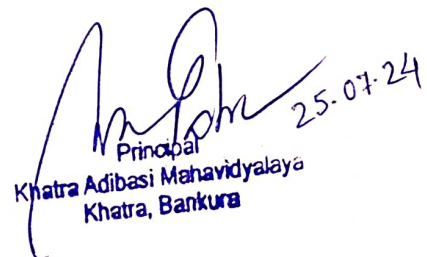 25.07.24
Principal
Khatra Adibasi Mahavidyalaya
Khatra, Bankura